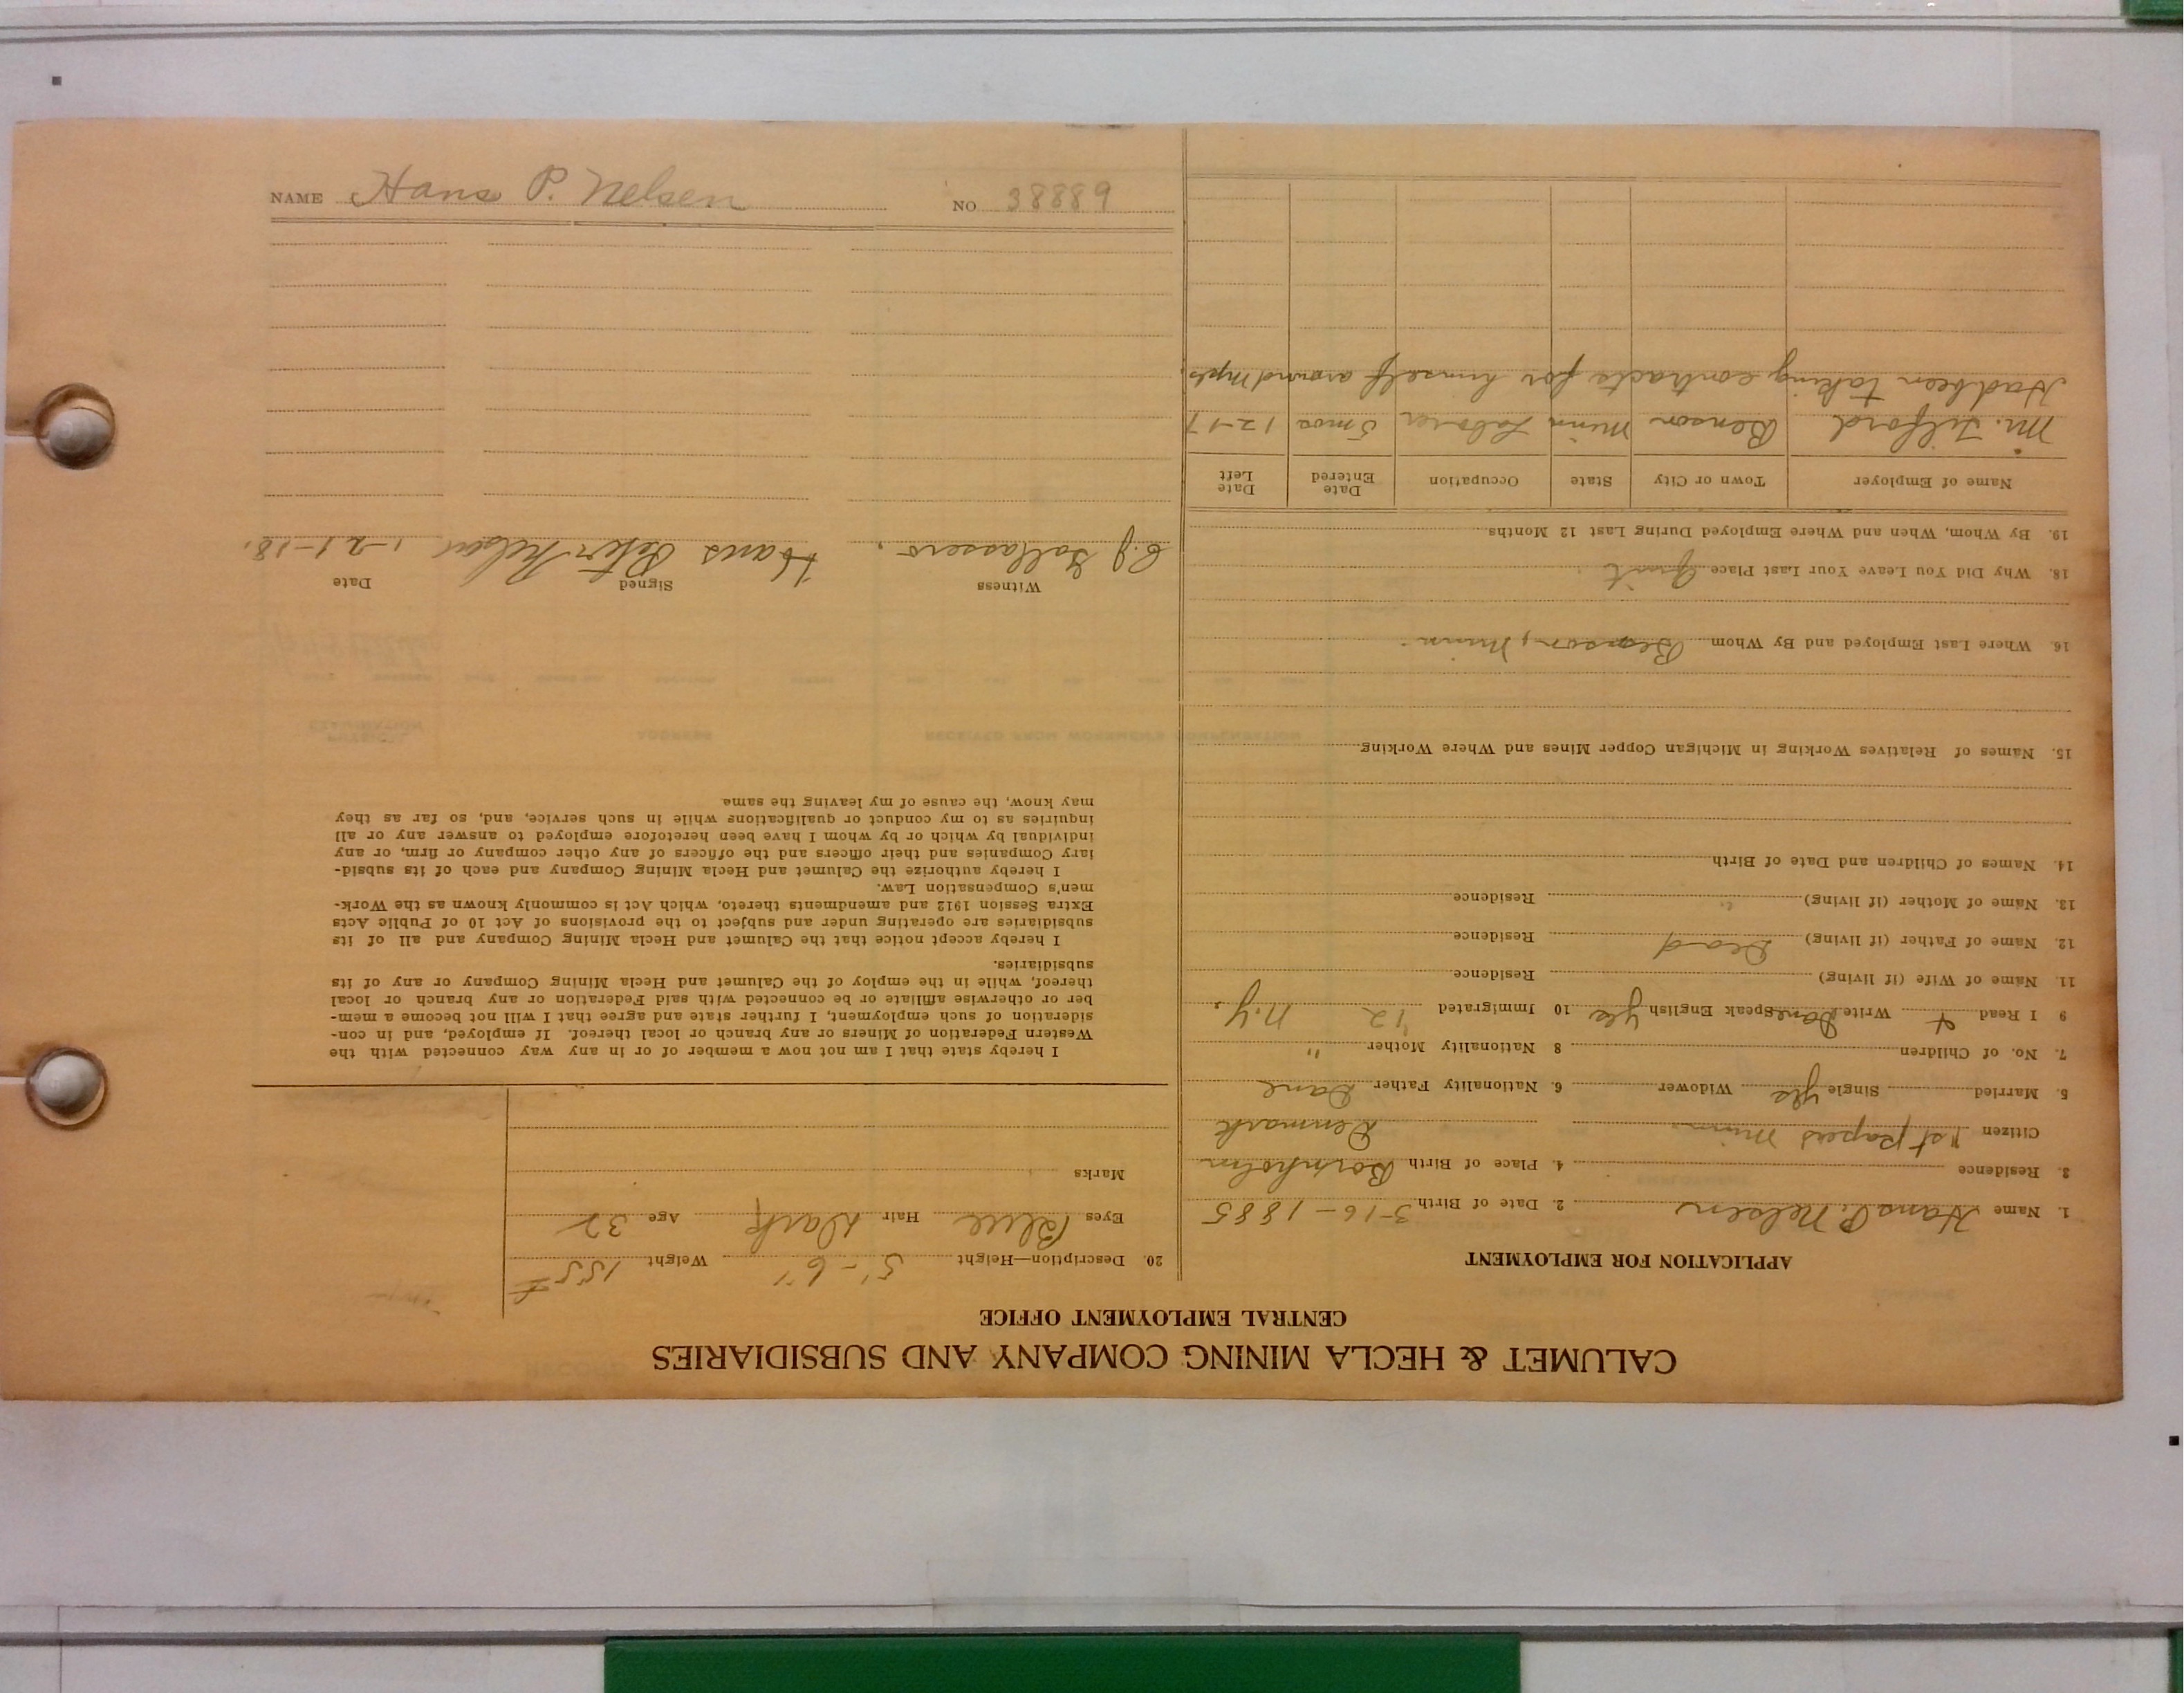 CALUMET & HECLA MINING COMPANY AND SUBSIDIARIES
CENTRAL EMPLOYMENT OFFICE
APPLICATION FOR EMPLOYMENT
1. Name Hans P. Nelsen 2. Date of Birth 3-16-1885
3. Residence 4. Place of Birth Bornholm
Citizen 1st papers Minn. Denmark
5. Married Single yes Widower 6. Nationality Father Dane
7. No. of Children 8 Nationality Mother "
9 I Read + Write Dane Speak English yes 10 Immigrated '12 N.Y.
11. Name of Wife (if living) Residence
12. Name of Father (if living) Dead Residence
13. Name of Mother (if living) " Residence
14. Names of Children and Date of Birth
15. Names of Relatives Working in Michigan Copper Mines and Where Working
16. Where Last Employed and By Whom Benson, Minn.
18. Why Did You Leave Your Last Place Quit
19. By Whom, When and Where Employed During Last 12 Months
Name of Employer Town or City State Occupation Date Entered Date Left
Mr. Tilford Benson Minn Laborer 5 mos 12-17
Had been taking contracts for himself around Mpls.
20. Description—Height 5'-6" Weight 155#
Eyes Blue Hair Dark Age 32
Marks
I hereby state that I am not now a member of or in any way connected with the
Western Federation of Miners or any branch or local thereof. If employed, and in con-
sideration of such employment, I further state and agree that I will not become a mem-
ber or otherwise affiliate or be connected with said Federation or any branch or local
thereof, while in the employ of the Calumet and Hecla Mining Company or any of its
subsidiaries.
I hereby accept notice that the Calumet and Hecla Mining Company and all of its
subsidiaries are operating under and subject to the provisions of Act 10 of Public Acts
Extra Session 1912 and amendments thereto, which Act is commonly known as the Work-
men's Compensation Law.
I hereby authorize the Calumet and Hecla Mining Company and each of its subsid-
iary Companies and their officers and the officers of any other company or firm, or any
individual by which or by whom I have been heretofore employed to answer any or all
inquiries as to my conduct or qualifications while in such service, and, so far as they
may know, the cause of my leaving the same.
Witness Signed Date
Hans Peter Nelsen 1-21-18.
NAME Hans P. Nelsen NO 38889